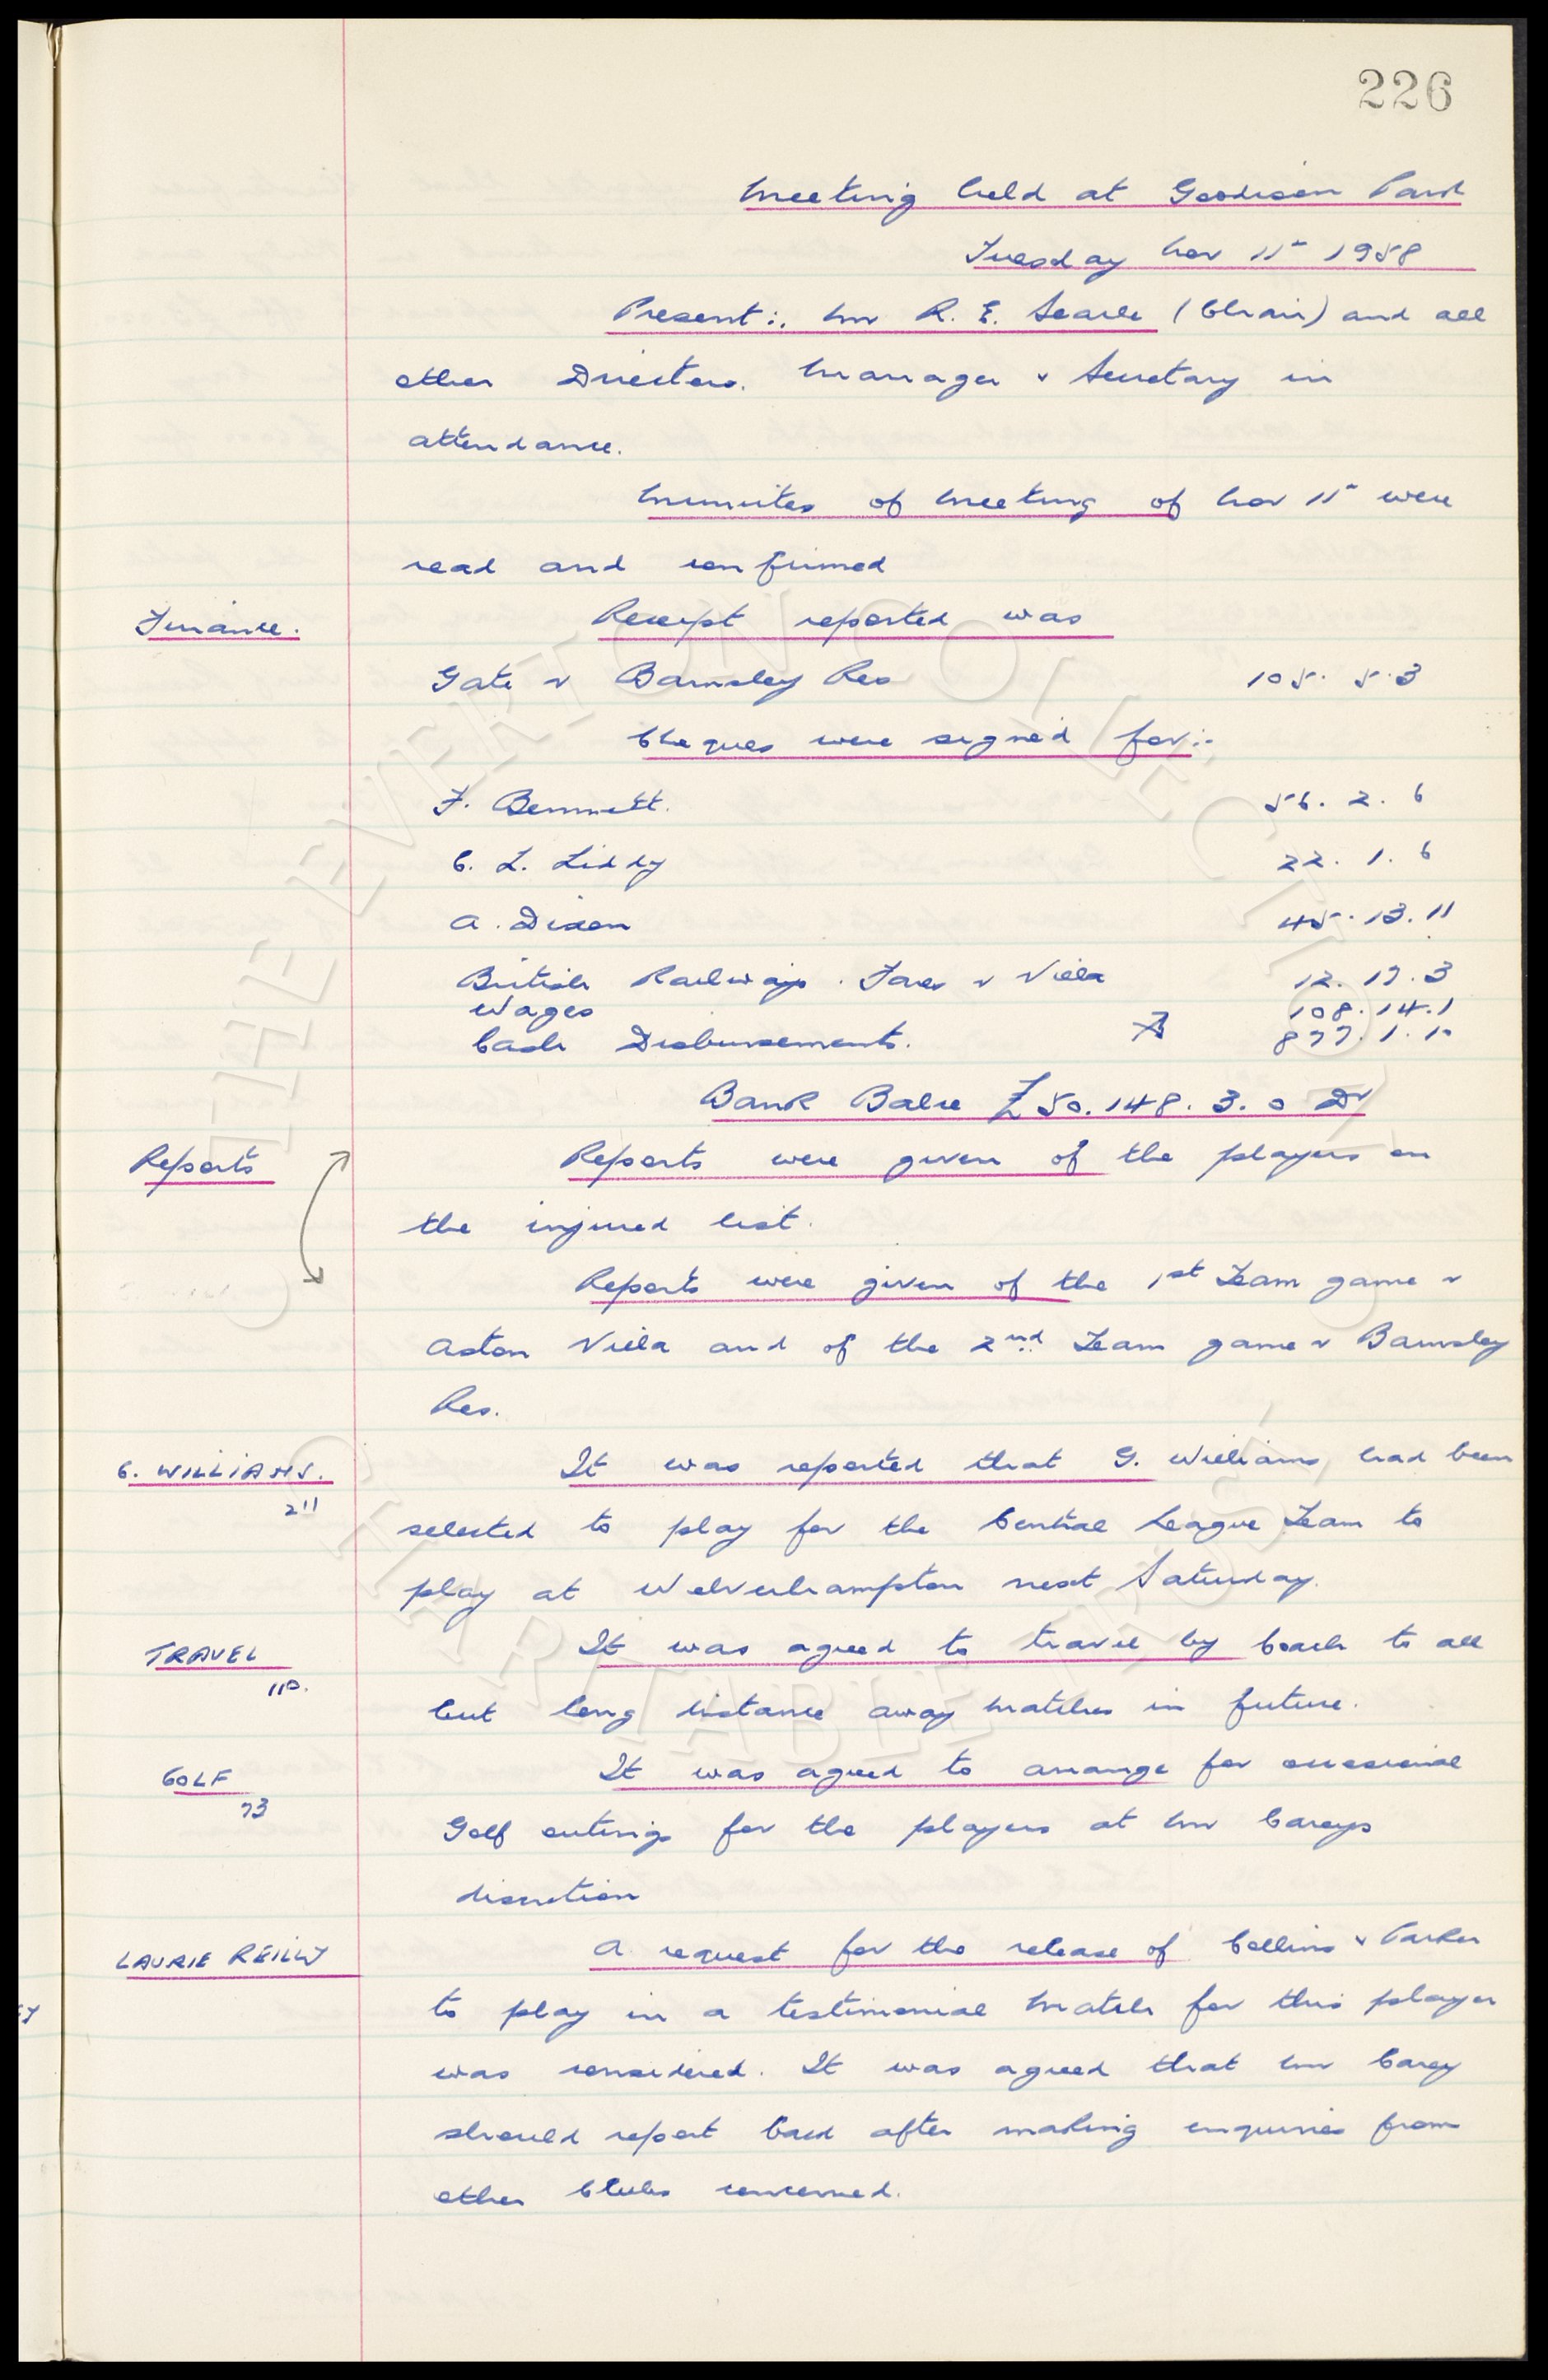 226
Meeting held at Goodison Park
Tuesday Nov 11th 1958
Present:. Mr R. E. Searle (Chair) and all
other Directors. Manager & Secretary in
attendance.
Minutes of Meeting of Nov 11th were
read and confirmed
Finance.
Receipt reported was
Gate v Barnsley Res 105. 5. 3
Cheques were signed for:-
F. Bennett. 56. 2. 6
C. L. Liddy 22. 1. 6
A. Dixon 45. 13. 11
British Railways. Fares v Villa 12. 17. 3
Wages 108. 14. 1
Cash Disbursements. 877. 1. 10
Bank Balce £50.148. 3. 0 Dr
Reports
Reports were given of the players on
the injured list.
Reports were given of the 1st Team game v
Aston Villa and of the 2nd Team game v Barnsley
Res.
G. WILLIAMS.
211
It was reported that G. Williams, had been
selected to play for the Central League Team to
play at Wolverhampton next Saturday.
TRAVEL
110.
It was agreed to travel by Coach to all
but long distance away Matches in future.
GOLF
73
It was agreed to arrange for occasional
Golf outings for the players at Mr Careys
discretion
LAURIE REILLY
A request for the release of Collins & Parker
to play in a testimonial Match for this player
was considered. It was agreed that Mr Carey
should report back after making enquiries from
other Clubs concerned.
THE EVERTON COLLECTION
CHARITABLE TRUST